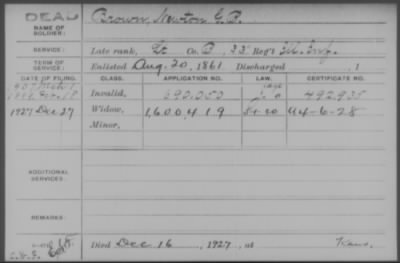 DEAD
NAME OF SOLDIER:
Brown, Newton G. B.
SERVICE:
Late rank, Lt Co. B, 33" Reg't Ill. Inf.
TERM OF SERVICE:
Enlisted Aug. 20, 1861 Discharged , 1
DATE OF FILING. CLASS. APPLICATION NO. LAW. CERTIFICATE NO.
Invalid, 492.935
1927 Dec 27 Widow, 1,600,419 A-6-28
Minor,
ADDITIONAL SERVICES:
REMARKS:
Died Dec 16, 1927, at Kans.